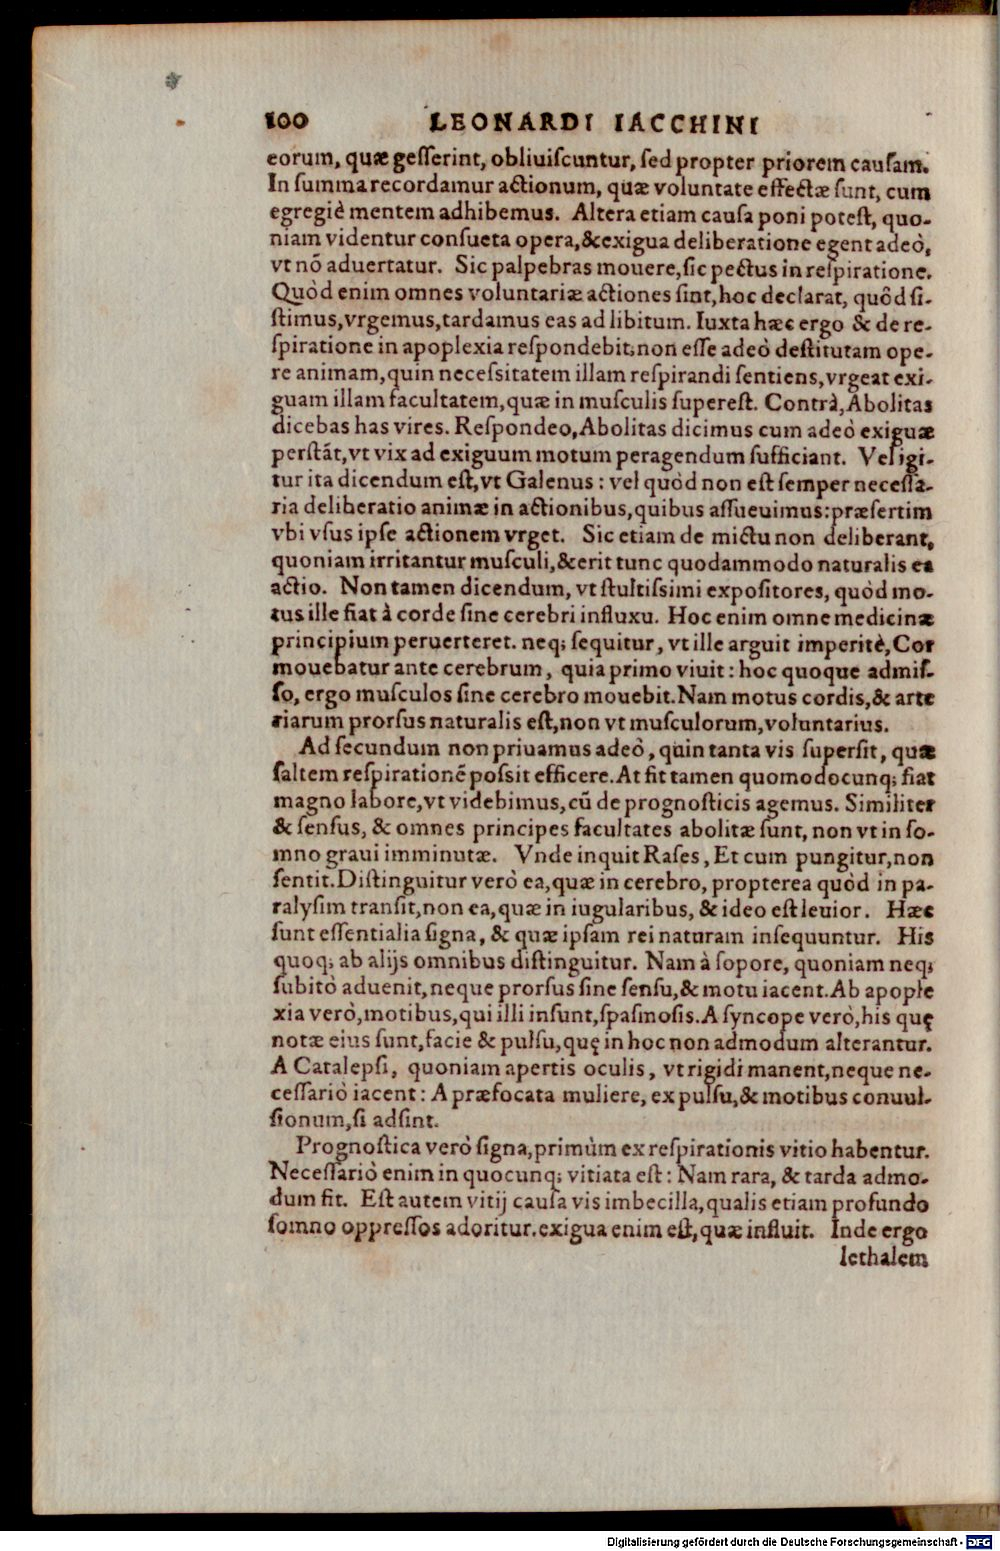 100 LEONARDI IACCHINI
eorum, quæ gesserint, obliuiscuntur, sed propter priorem causam.
In summa recordamur actionum, quæ voluntate effectæ sunt, cum
egregiè mentem adhibemus. Altera etiam causa poni potest, quo-
niam videntur consueta opera, & exigua deliberatione egent adeò,
vt nō aduertatur. Sic palpebras mouere, sic pectus in respiratione.
Quòd enim omnes voluntariæ actiones sint, hoc declarat, quòd si-
stimus, vrgemus, tardamus eas ad libitum. Iuxta hæc ergo & de re-
spiratione in apoplexia respondebit: non esse adeò destitutam ope-
re animam, quin necessitatem illam respirandi sentiens, vrgeat exi-
guam illam facultatem, quæ in musculis superest. Contrà, Abolitas
dicebas has vires. Respondeo, Abolitas dicimus cum adeò exiguæ
perstāt, vt vix ad exiguum motum peragendum sufficiant. Vel igi-
tur ita dicendum est, vt Galenus: vel quòd non est semper necessa-
ria deliberatio animæ in actionibus, quibus assueuimus: præsertim
vbi vsus ipse actionem vrget. Sic etiam de mictu non deliberant,
quoniam irritantur musculi, & erit tunc quodammodo naturalis ea
actio. Non tamen dicendum, vt stultissimi expositores, quòd mo-
tus ille fiat à corde sine cerebri influxu. Hoc enim omne medicinæ
principium peruerteret. neq; sequitur, vt ille arguit imperitè, Cor
mouebatur ante cerebrum, quia primo viuit: hoc quoque admis-
so, ergo musculos sine cerebro mouebit. Nam motus cordis, & arte
riarum prorsus naturalis est, non vt musculorum, voluntarius.
Ad secundum non priuamus adeò, quin tanta vis supersit, quæ
saltem respirationē possit efficere. At fit tamen quomodocunq; fiat
magno labore, vt videbimus, cū de prognosticis agemus. Similiter
& sensus, & omnes principes facultates abolitæ sunt, non vt in so-
mno graui imminutæ. Vnde inquit Rases, Et cum pungitur, non
sentit. Distinguitur verò ea, quæ in cerebro, propterea quòd in pa-
ralysim transit, non ea, quæ in iugularibus, & ideo est leuior. Hæc
sunt essentialia signa, & quæ ipsam rei naturam insequuntur. His
quoq; ab alijs omnibus distinguitur. Nam à sopore, quoniam neq;
subitò aduenit, neque prorsus sine sensu, & motu iacent. Ab apople
xia verò, motibus, qui illi insunt, spasmosis. A syncope verò, his quę
notæ eius sunt, facie & pulsu, quę in hoc non admodum alterantur.
A Catalepsi, quoniam apertis oculis, vt rigidi manent, neque ne-
cessariò iacent: A præfocata muliere, ex pulsu, & motibus conuul-
sionum, si adsint.
Prognostica verò signa, primùm ex respirationis vitio habentur.
Necessariò enim in quocunq; vitiata est: Nam rara, & tarda admo-
dum fit. Est autem vitij causa vis imbecilla, qualis etiam profundo
somno oppressos adoritur. exigua enim est, quæ influit. Inde ergo
lethalem
Digitalisierung gefördert durch die Deutsche Forschungsgemeinschaft - DFG